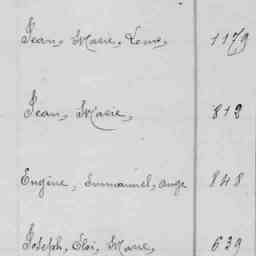 Jean, Marie, Louis, 1179
Jean, Marie, 812
Eugène, Emmanuel, Ange 848
Joseph, Eloi, Marie, 639